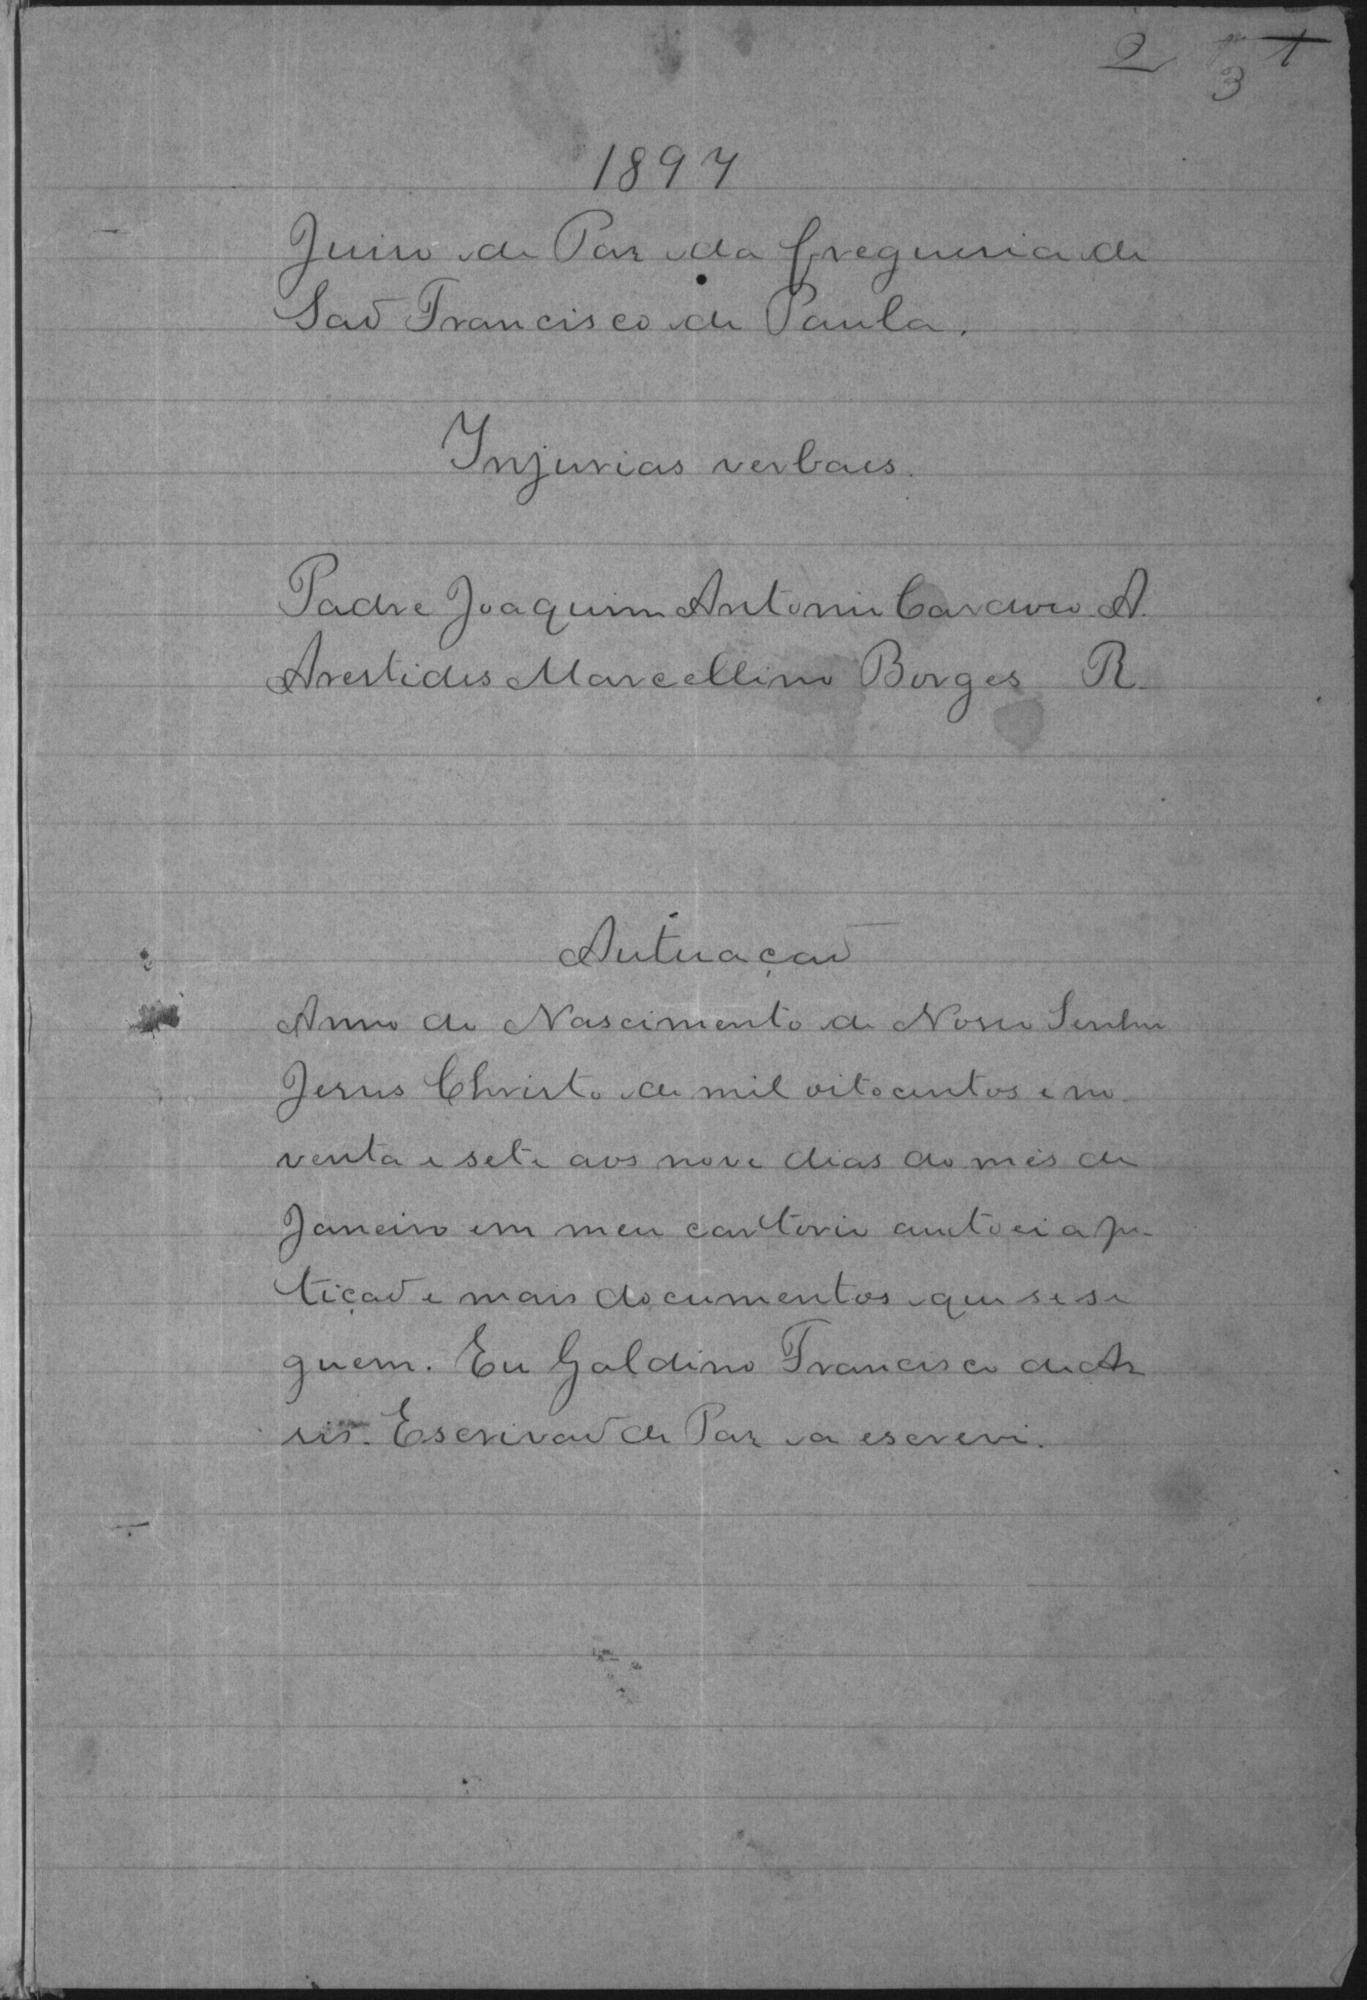 2 1
3
1897
Juiso de Paz da freguesia de
Saõ Francisco de Paula.
Injurias verbaes.
Padre Joaquim Antonio Cardoso A.
Arestides Marcellino Borges R.
Autuaçaõ
Anno do Nascimento de Nosso Senhor
Jesus Christo de mil oitocentos e no-
venta e sete aos nove dias do mês de
Janeiro em meu cartorio autoei a pe-
tiçaõ e mais documentos que se se
guem. Eu Galdino Francisco de As
sis. Escrivaõ de Paz a escrevi.